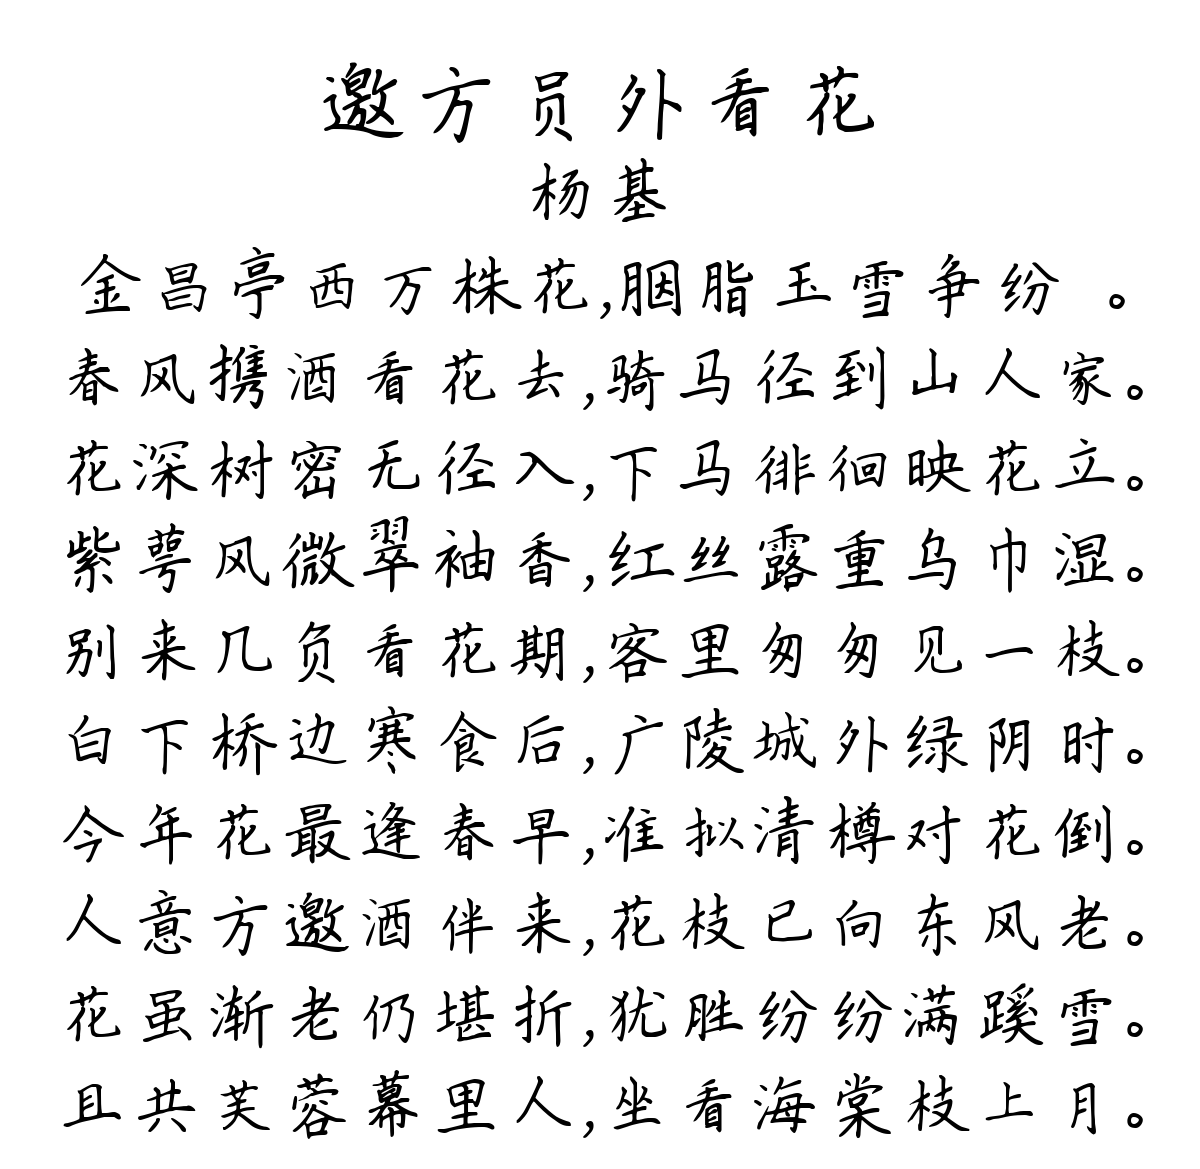 邀方员外看花
杨基
金昌亭西万株花,胭脂玉雪争纷 。
春风携酒看花去,骑马径到山人家。
花深树密无径入,下马徘徊映花立。
紫萼风微翠袖香,红丝露重乌巾湿。
别来几负看花期,客里匆匆见一枝。
白下桥边寒食后,广陵城外绿阴时。
今年花最逢春早,准拟清樽对花倒。
人意方邀酒伴来,花枝已向东风老。
花虽渐老仍堪折,犹胜纷纷满蹊雪。
且共芙蓉幕里人,坐看海棠枝上月。